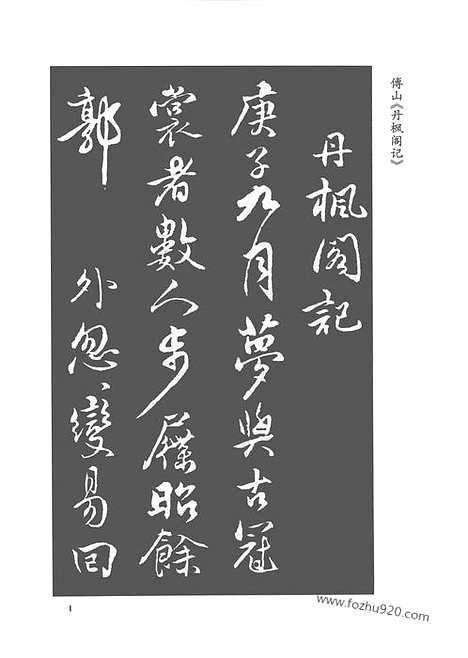 傅山《丹枫阁记》
丹楓閣記
庚子九月夢與古冠
裳者數人步屧昭餘
郭 外忽〻變易回
1
www.fozhu920.com